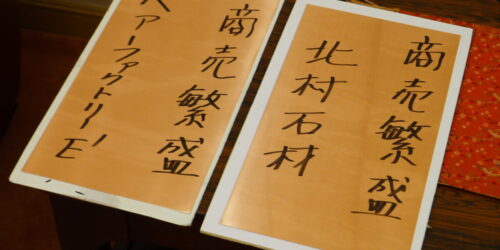 商売繁盛
北村石材
商売繁盛
ヘアーファクトリーE